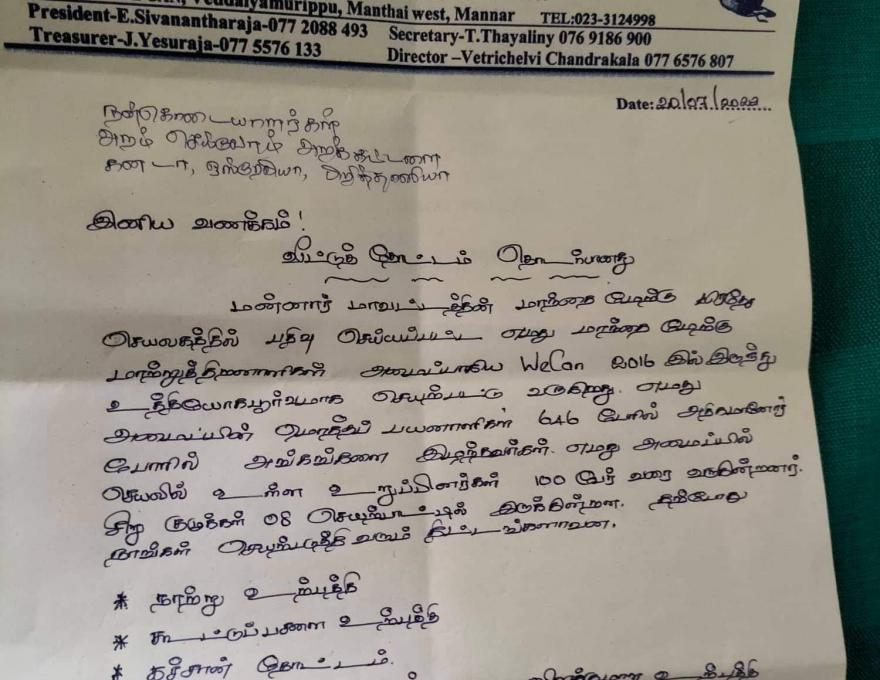 Veddaiyamurippu, Manthai west, Mannar TEL:023-3124998
President-E.Sivanantharaja-077 2088 493 Secretary-T.Thayaliny 076 9186 900
Treasurer-J.Yesuraja-077 5576 133 Director –Vetrichelvi Chandrakala 077 6576 807
Date: 20/07/2022
நன்கொடையாளர்கள்
அறம் செய்வோம் அறக்கட்டளை
கனடா, ஒஸ்ரேலியா, பிரித்தானியா
இனிய வணக்கம்!
வீட்டுத் தோட்டம் தொடர்பானது
மன்னார் மாவட்டத்தின் மாந்தை மேற்கு பிரதேச
செயலகத்தில் பதிவு செய்யப்பட்ட எமது மாந்தை மேற்கு
மாற்றுத்திறனாளிகள் அமைப்பாகிய WeCan 2016 இல் இருந்து
உத்தியோகபூர்வமாக செயற்பட்டு வருகிறது. எமது
அமைப்பின் மொத்தப் பயனாளிகள் 646 பேரில் அதிகமானோர்
போரில் அங்கங்களை இழந்தவர்கள். எமது அமைப்பில்
செயலில் உள்ள உறுப்பினர்கள் 100 பேர் வரை வருகின்றனர்.
சிறு குழுக்கள் 08 செயற்பாட்டில் இருக்கின்றன. தற்போது
நாங்கள் செயற்படுத்தி வரும் திட்டங்களாவன.
* நாற்று உற்பத்தி
* கூட்டுப்பசளை உற்பத்தி
* கச்சான் தோட்டம்.
உற்பத்தி